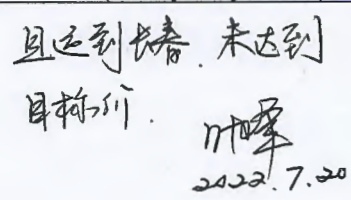 且运到长春.未达到
目标价.
叶峰
2022.7.20